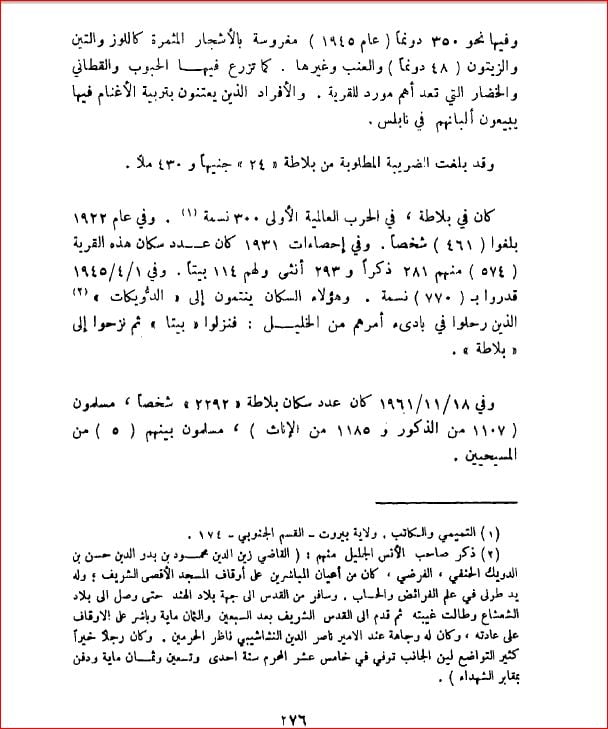 وفيها نحو ٣٥٠ دونماً ( عام ١٩٤٥ ) مغروسة بالأشجار المثمرة كاللوز والتين
والزيتون ( ٤٨ دونماً ) والعنب وغيرها . كما تزرع فيهـــا الحبوب والقطاني
والخضار التي تعد أهم مورد للقرية . والأفراد الذين يعتنون بتربية الأغنام فيها
يبيعون ألبانهم في نابلس .
وقد بلغت الضريبة المطلوبة من بلاطة « ٢٤ » جنيهاً و ٤٣٠ ملاً .
كان في بلاطة ، في الحرب العالمية الأولى ٣٠٠ نسمة (١) . وفي عام ١٩٢٢
بلغوا ( ٤٦١ ) شخصاً . وفي إحصاءات ١٩٣١ كان عـــدد سكان هذه القرية
( ٥٧٤ ) منهم ٢٨١ ذكراً و ٢٩٣ أنثى ولهم ١١٤ بيتاً . وفي ١٩٤٥/٤/١
قدروا بـ ( ٧٧٠ ) نسمة . وهؤلاء السكان ينتمون إلى « الدُّويكات » (٢)
الذين رحلوا في بادىء أمرهم من الخليـــل : فنزلوا « بيتا » ثم نزحوا إلى
« بلاطة » .
وفي ١٩٦١/١١/١٨ كان عدد سكان بلاطة « ٢٢٩٢ » شخصاً ، مسلمون
( ١١٠٧ من الذكور و ١١٨٥ من الإناث ) ، مسلمون بينهم ( ٥ ) من
المسيحيين .
(١) التميمي والكاتب . ولاية بيروت - القسم الجنوبي - ١٧٤ .
(٢) ذكر صاحب الأنس الجليل منهم : ( القاضي زين الدين محمـــود بن بدر الدين حسن بن
الدويك الحنفي ، الفرضي ، كان من أعيان المباشرين على أوقاف المسجد الأقصى الشريف ؛ وله
يد طولى في علم الفرائض والحساب . وسافر من القدس الى جهة بلاد الهند حتى وصل الى بلاد
الشعشاع وطالت غيبته ثم قدم الى القدس الشريف بعد السبعين والثان ماية وباشر على الاوقاف
على عادته ، وكان له وجاهة عند الامير ناصر الدين النشاشيبي ناظر الحرمين . وكان رجلاً خيراً
كثير التواضع لين الجانب توفي في خامس عشر المحرم سنة احدى وتسعين وثمـــان ماية ودفن
بمقابر الشهداء ) .
٢٧٦